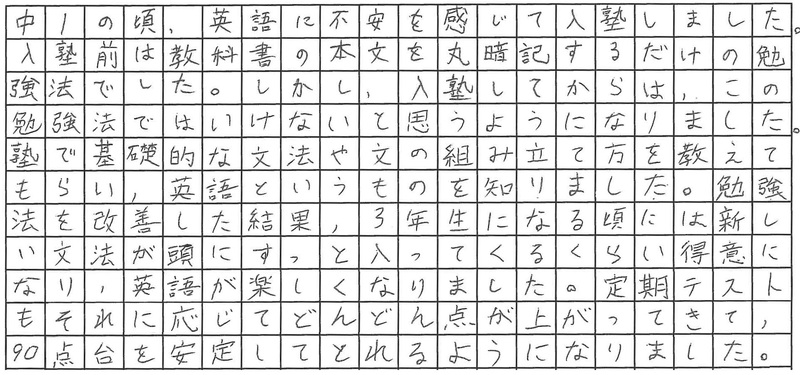 中1の頃,英語に不安を感じて入塾しました。
入塾前は教科書の本文を丸暗記するだけの勉
強法でした。しかし,入塾してからは,この
勉強法ではいけないと思うようになりました。
塾で基礎的な文法や文の組み立て方を教えて
もらい,英語というものを知りました。勉強
法を改善した結果,3年生になる頃には新し
い文法が頭にすっと入ってくるくらい得意に
なり,英語が楽しくなりました。定期テスト
もそれに応じてどんどん点が上がってきて,
90点台を安定してとれるようになりました。